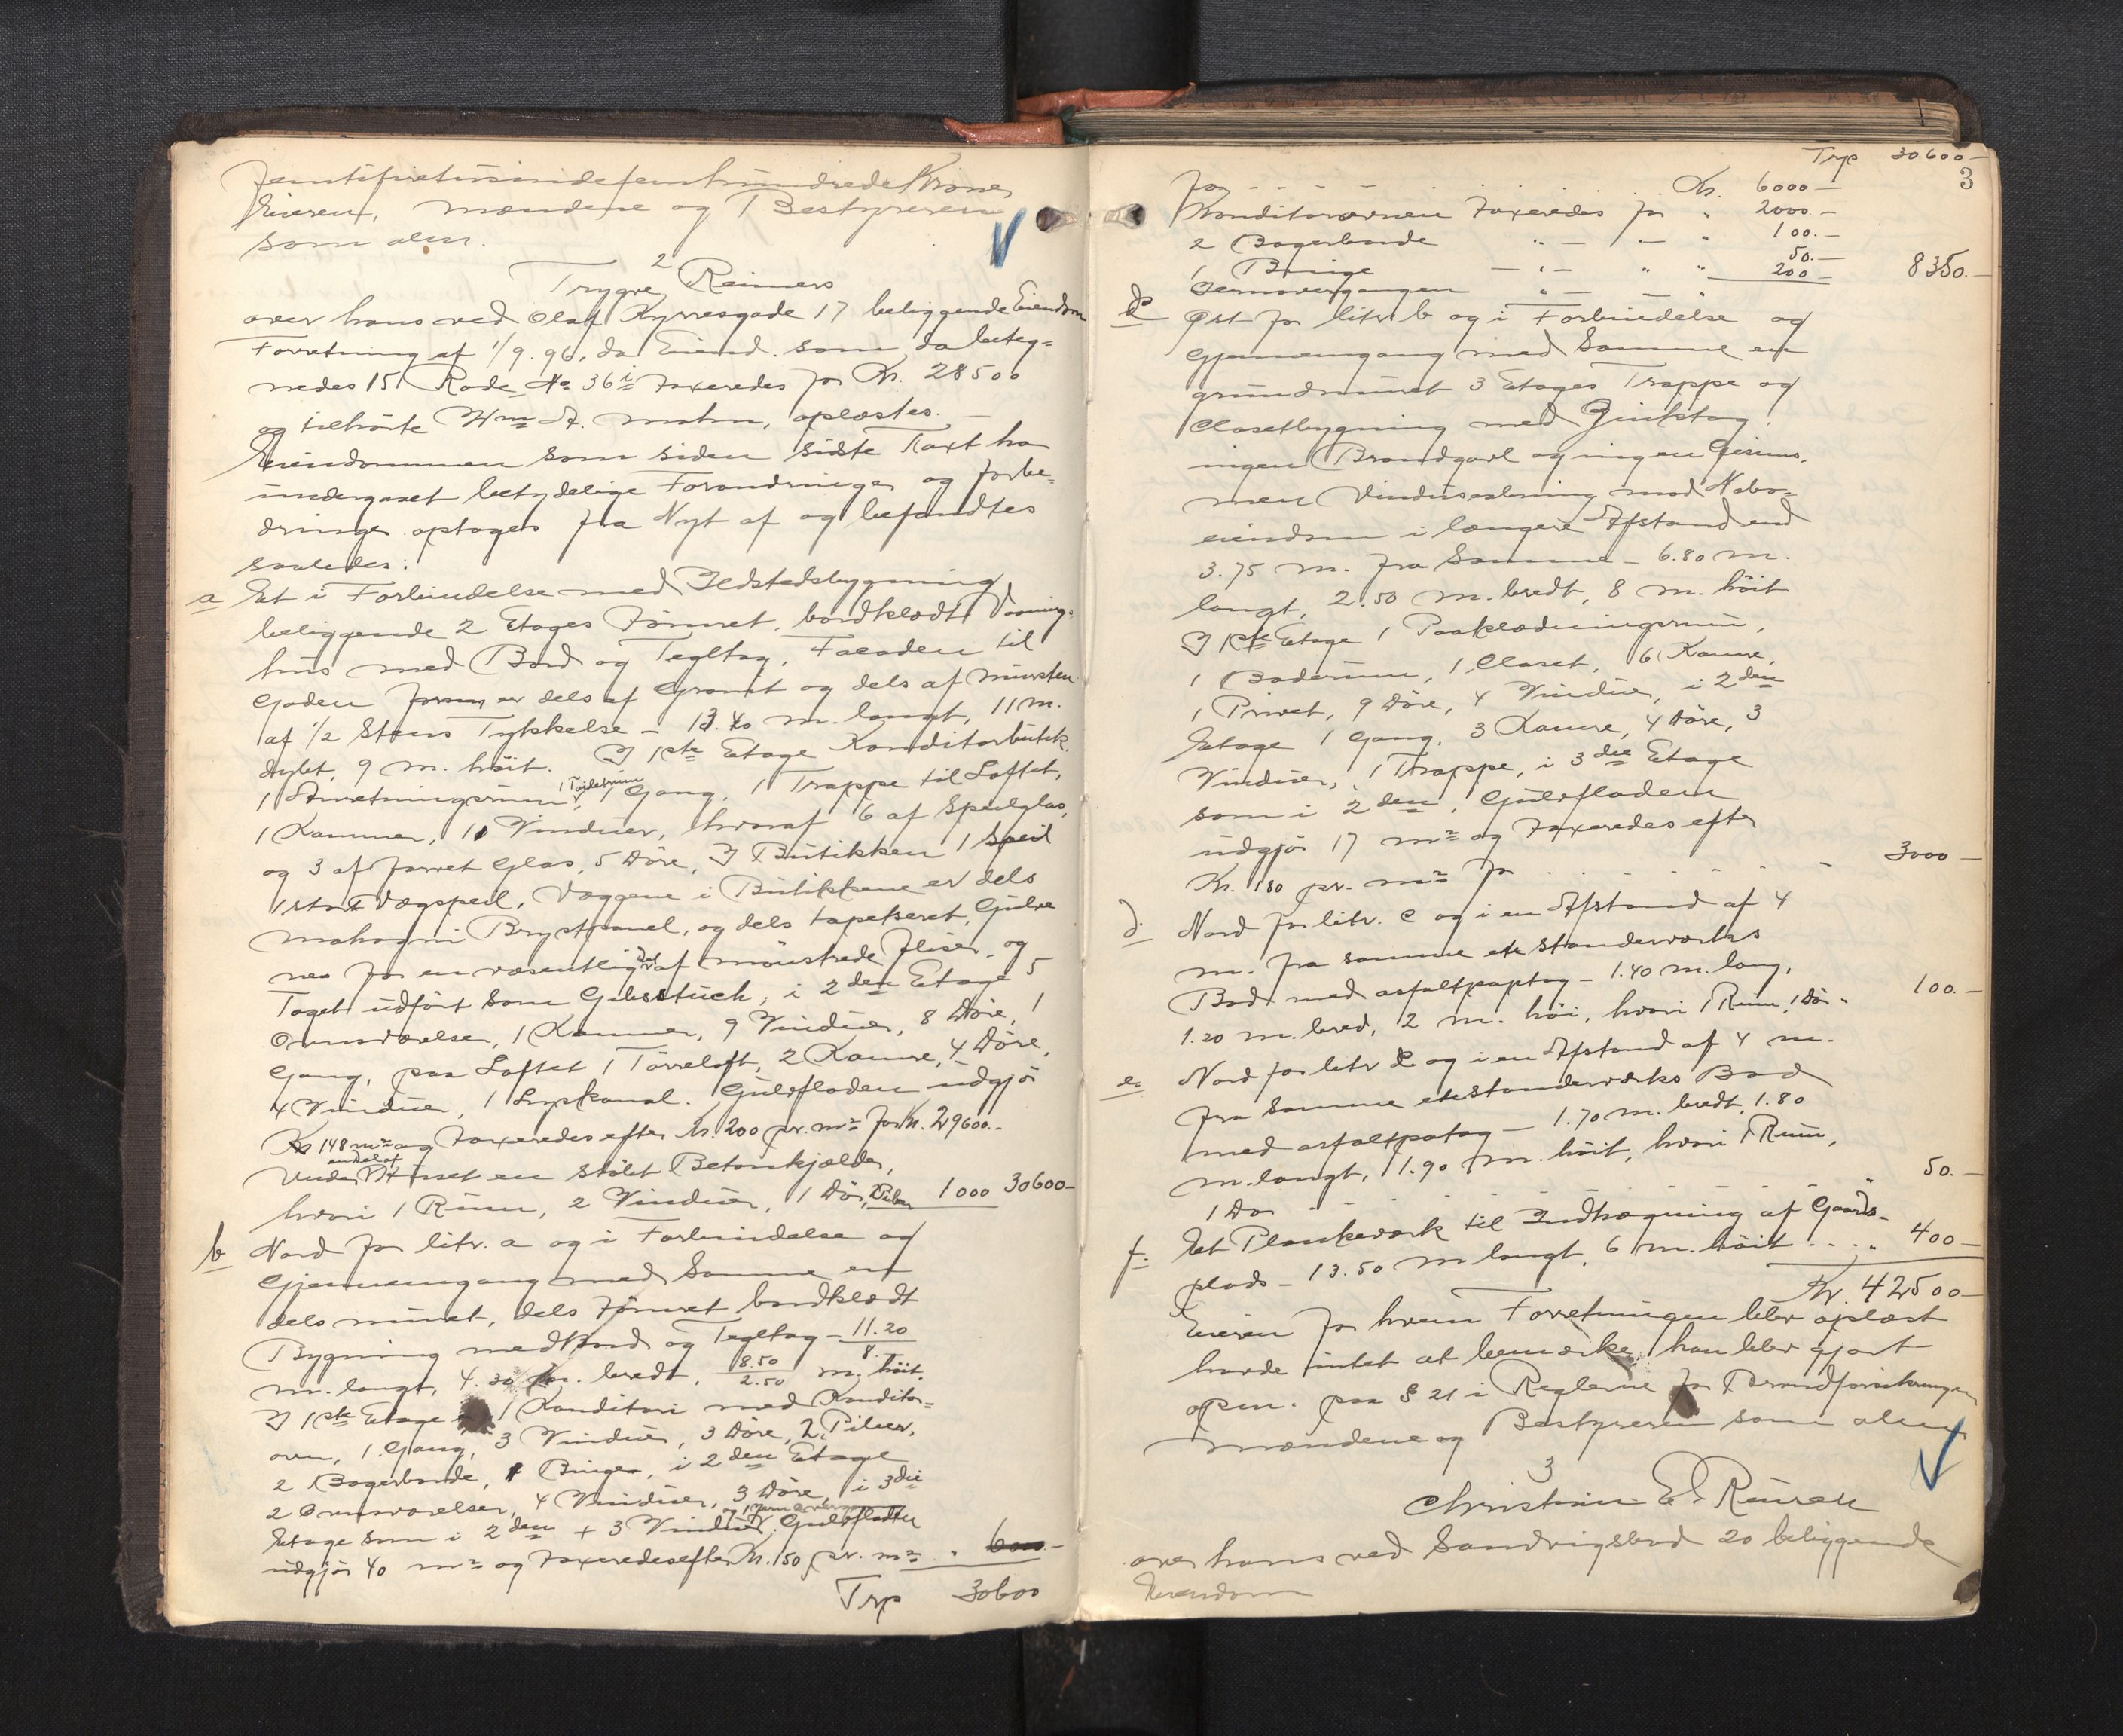 femtifiretusindefemhundrede Kroner
Eieren, Mændene og Bestyreren
som alm.
2
Trygve Reimers
over hans ved Olaf Kyrresgade 17 beliggende Eiendom
Forretning af 1/9. 96, da Eiend. som da beteg-
nedes 15 Rode No 36 i taxeredes for Kr. 28500
og tilhörte Wm A. Mohn, oplæstes. —
Eiendommen som siden sidste Taxt har
undergaaet betydelige Forandringer og forbe-
dringer optages fra Nyt af og befandtes
saaledes:
a Et i Forbindelse med Ildstedsbygning
beliggende 2 Etages tömret, bordklædt Vaaning-
hus med Bord og Tegltag, Facaden til
Gaden er dels af Granit og dels af Mursten
af 1/2 Stens Tykkelse – 13.40 m. langt, 11 m.
dybt, 9 m. höit. I 1ste Etage Konditorbutik,
1 Anretningsrum, 1 Toiletrum 1 Gang, 1 Trappe til Loftet,
1 Kammer, 10 Vinduer, hvoraf 6 af Speilglas,
og 3 af farvet Glas, 5 Döre, I Butikken 1 Speil
1 stort Vægspeil, Væggene i Butikkene er dels
Mahogni Brystpanel, og dels tapetseret, Gulve
ne for en væsentlig Del af mönstrede Fliser, og
Taget udfört som Gibsstuck, i 2den Etage 5
Ovnsværelser, 1 Kammer, 9 Vinduer, 8 Döre, 1
Gang, paa Loftet 1 Törreloft, 2 Kamre, 4 Döre,
4 Vinduer, 1 Lyskanal. Gulvfladen udgjör
148 m2 og taxeredes efter Kr. 200 pr. m2 for Kr. 29600.-
Under en Del af Huset en stöbt Betonkjælder,
hvori 1 Rum, 2 Vinduer, 1 Dör, Piber 1000 30600-
b Nord for litr. a og i Forbindelse og
Gjennemgang med Samme en
dels muret, dels tömret bordklædt
Bygning med Bord og Tegltag – 11.20 / 8.
m. langt, 4.30 m. bredt, 8.50 / 2.50 m. höit.
I 1ste Etage 1 Konditori med Konditor-
ovn, 1 Gang, 3 Vinduer, 3 Döre, 2 Piber,
2 Bagerborde, 1 Binge, i 2den Etage
2 Ovnsværelser, 4 Vinduer, 3 Döre, i 3die
Etage som i 2den + 3 Vinduer, og 1 Jernovergang Gulvfladen
udgjör 40 m2 og taxeredes efter Kr. 150 pr. m2 . " 6000.-
Trp 30600
Trp 30600-
3
for - - - - - - Kr. 6000 –
Konditorovnen taxeredes for " 2000.–
2 Bagerborde " – " – " 100.–
1 Binge – " – " " 50.–
Jernovergangen " – 200 – 8350.–
c Öst for litr b og i Forbindelse og
Gjennemgang med Samme en
grundmuret 3 Etages Trappe og
Closetbygning med Zinktag,
ingen Brandgavl og ingen Gesims,
men Vinduesaabning mod Nabo-
eiendom i længere Afstand end
3.75 m. fra Samme – 6.80 m.
langt, 2.50 m. bredt, 8 m. höit
I 1ste Etage 1 Paaklædningsrum,
1 Baderum, 1 Closet, 6 Kamre,
1 Privet, 9 Döre, 4 Vinduer, i 2den
Etage 1 Gang, 3 Kamre, 4 Döre, 3
Vinduer, 1 Trappe, i 3die Etage
som i 2den, Gulvfladen
udgjör 17 m2 og taxeredes efter
Kr. 180 pr. m2 for . . . . . 3000 –
d. Nord for litr. c og i en Afstand af 4
m. fra samme et Standerværks
Bod med asfaltpaptag – 1.40 m. lang,
1.20 m. bred, 2 m. höi, hvori 1 Rum, 1 Dör. " 100.–
e. Nord for litr c og i en Afstand af 4 m.
fra Samme et Standerværks Bod
med asfaltpatag – 1.70 m. bredt, 1.80
m. langt, 1.90 m. höit, hvori 1 Rum,
1 Dör - - - - - - " 50.–
f. Et Plankeværk til Indhægning af Gaards-
plads – 13.50 m langt, 6 m. höit . . . . " 400 –
Kr. 42500-
Eieren for hvem Forretningen blev oplæst
havde intet at bemærke, han blev gjort
opm. paa § 21 i Reglerne for Brandforsikringen
Mændene og Bestyreren som alm
3
Christian E. Reusch
over hans ved Sandvigsbod 20 beliggende
Eiendom